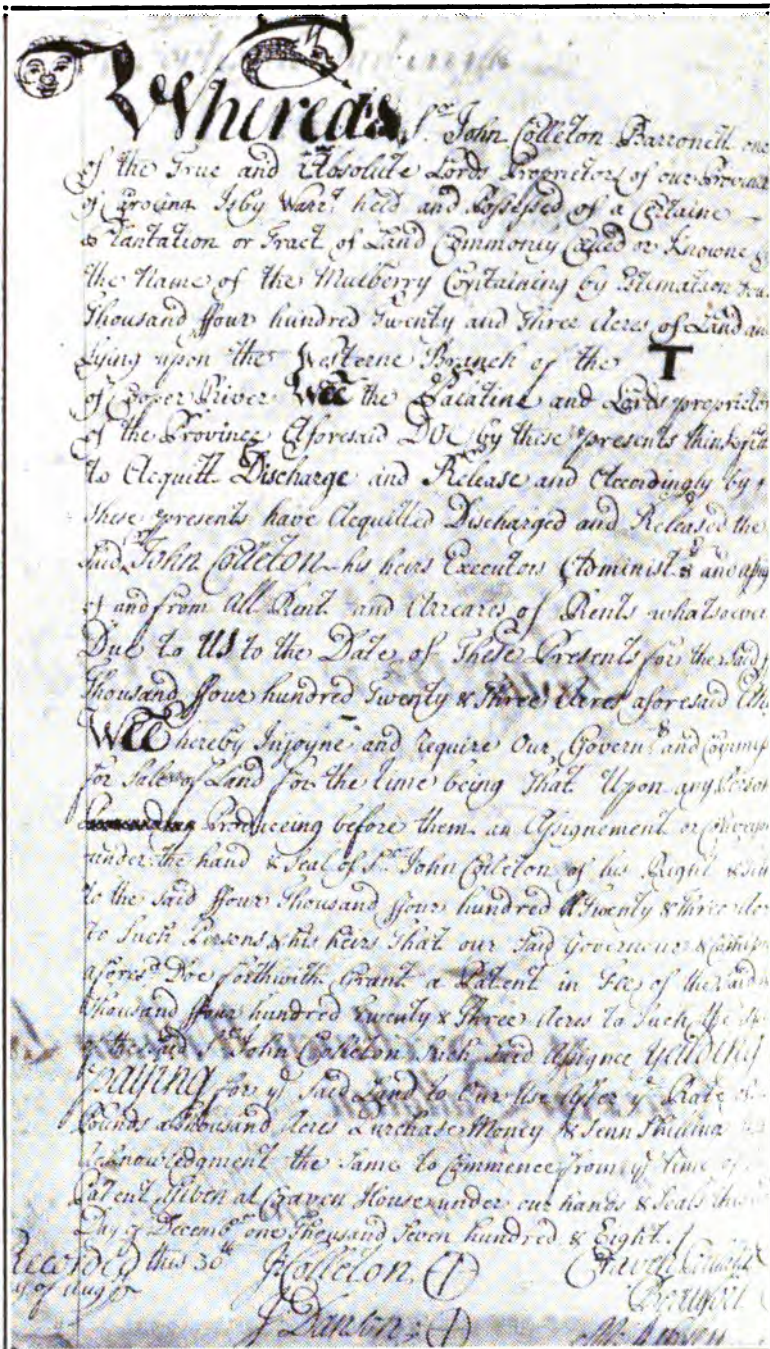 Whereas Sr. John Colleton Barronett one
of the True and Absolute Lords Proprietors of our Province
of Carolina Is by Warrt. held and Possessed of a Certaine
Plantation or Tract of Land Commonly Called or Knowne
the Name of the Mulberry Containing by Estimation
Thousand ffour hundred Twenty and Three Acres of Land and
Lying upon the Westerne Branch of the T
of Cooper River Wee the Palatine and Lords proprietors
of the Province Aforesaid DOE by these presents think
to Acquitt Discharge and Release and Accordingly by
these presents have Acquitted Discharged and Released the
Said John Colleton his heirs Executors Administrs and
of and from All Rent and Arreares of Rents whatsoever
Due to US to the Date of These Presents for the said
Thousand ffour hundred Twenty & Three Acres aforesaid
WEE hereby Injoyne and require Our Governr and
for Sale of Land for the time being That Upon any Person
Produceing before them an Assignement or
under the hand & Seal of Sr. John Colleton of his Right &
to the said ffour Thousand ffour hundred Twenty & Three
to Such Persons & his heirs That our Said Governour &
aforesd. Doe forthwith Grant a Patent in Fee of the said
Thousand ffour hundred Twenty & Three Acres to Such the
of the said Sr. John Colleton Such Said Assignee Yeilding
paying for ye Said Land to Our Use After ye Rate of
Pounds a thousand Acres Purchase Money & Tenn Shillings
Acknowledgment the Same to Commence from ye time of
Patent Given at Craven House under our hands & Seals this
Day of December one Thousand Seven hundred & Eight
Recorded this 30th J Colleton Craven Palatin
of Augst Beaufort
J Danson